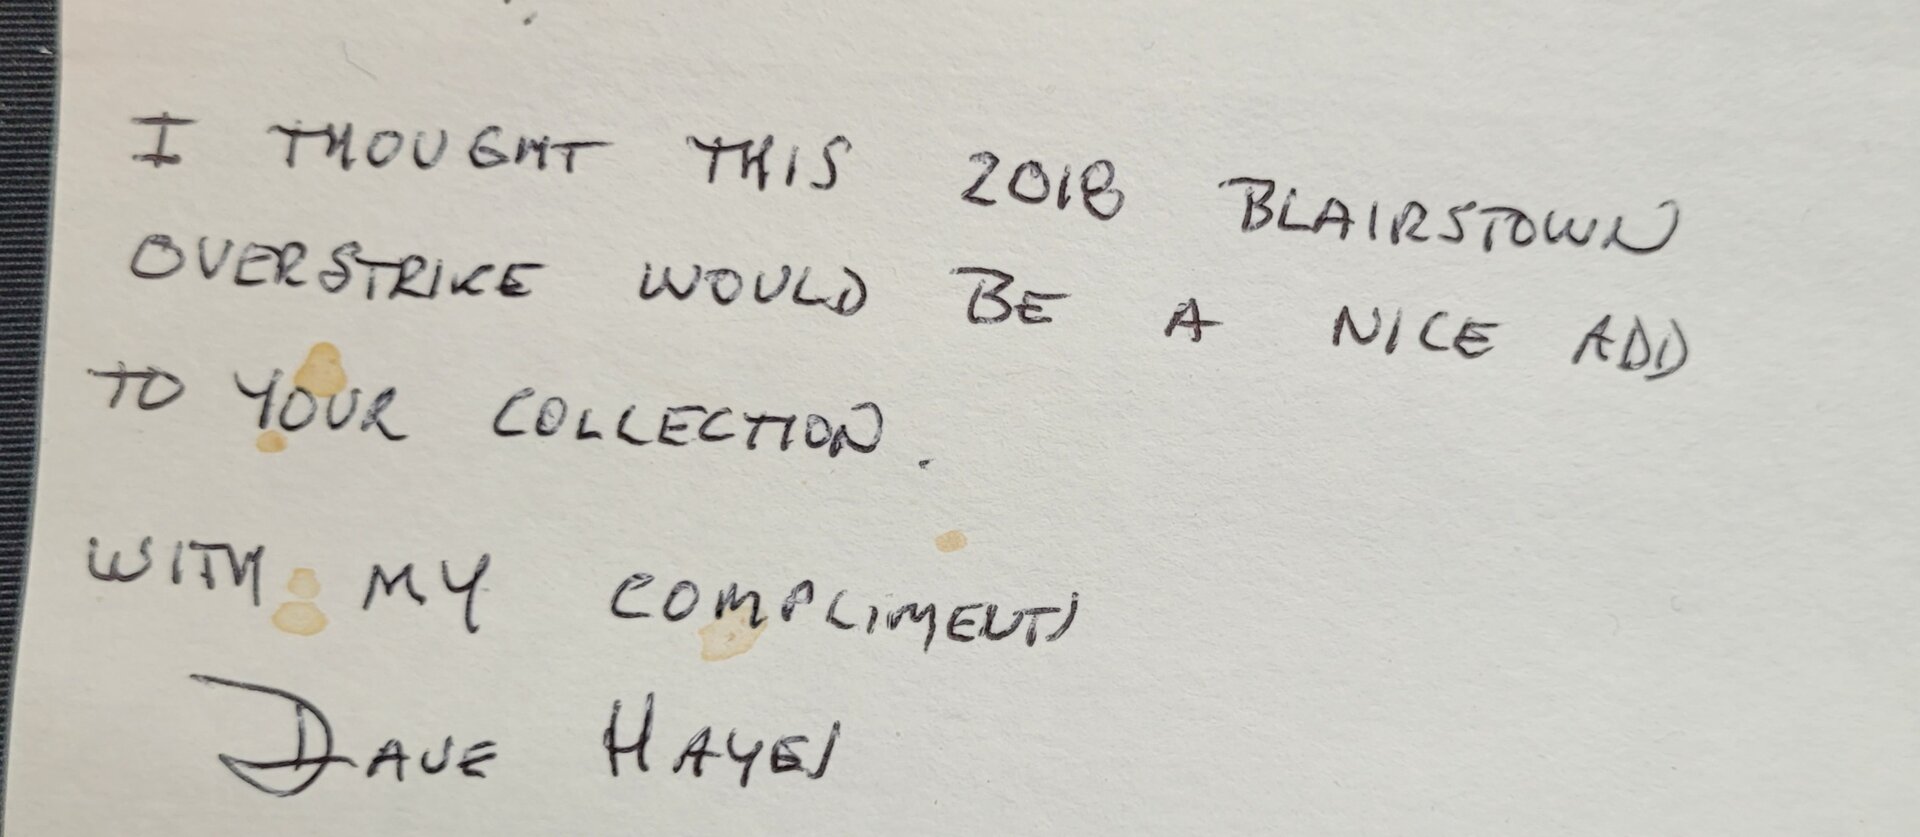 I THOUGHT THIS 2018 BLAIRSTOWN
OVERSTRIKE WOULD BE A NICE ADD
TO YOUR COLLECTION.
WITH MY COMPLIMENTS
DAVE HAYES